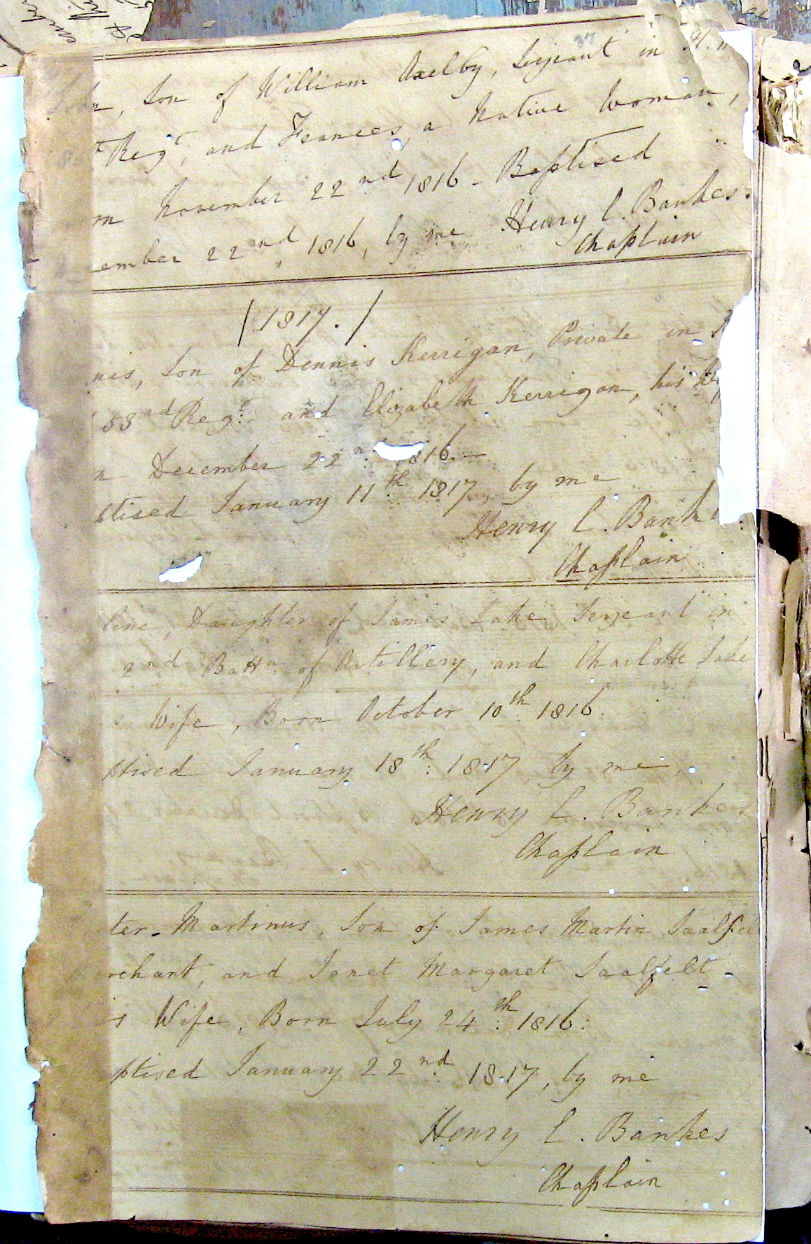 37
John, Son of William Axelby, Serjeant in H.
Regt. and Frances, a Native Woman,
November 22nd 1816 - Baptised
ember 22nd, 1816, by me Henry L. Bankes.
Chaplain
/ 1817. /
nis, Son of Dennis Kerrigan, Private in
53rd Regt. and Elizabeth Kerrigan, his
n December 22n 1816.—
ptised January 11th 1817, by me
Henry L. Banke
Chaplain
line, Daughter of James Lake Serjeant in
2nd Battn. of Artillery, and Charlotte Lake
s Wife, Born October 10th 1816.
ptised January 18th: 1817 by me,
Henry L. Bankes
Chaplain
ter-Martinus, Son of James Martin Saalfe
rchant, and Janet Margaret Saalfelt -
s Wife, Born July 24th: 1816:
ptised January 22nd 1817, by me
Henry L. Bankes
Chaplain